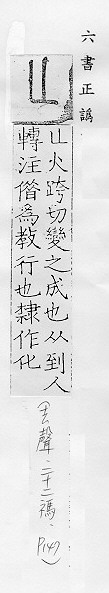 六書正譌
𠤎
𠤎火跨切變之成也从到人
轉注借為教行也隸作化
(去聲.二十二禡.P147)